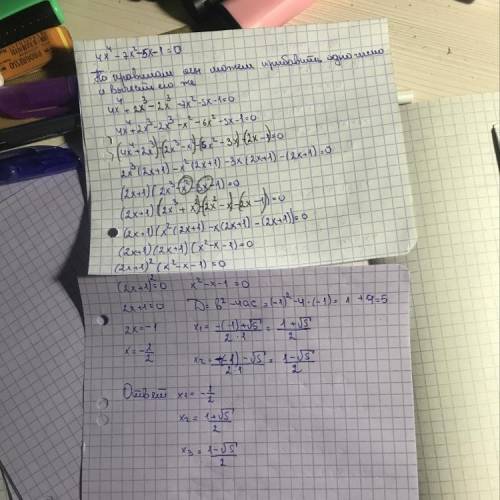 4x⁴-7x²-5x-1=0
По правилам мы можем прибавить одно число
и вычесть его же
4x⁴+2x³-2x³-7x²-5x-1=0
4x⁴+2x³-2x³-x²-6x²-5x-1=0
(4x⁴+2x³)-(2x³-x²)-(6x²-3x)-(2x-1)=0
2x³(2x+1)-x²(2x+1)-3x(2x+1)-(2x+1)=0
(2x+1)(2x³-x²-3x-1)=0
(2x+1)(2x³+x²)-(2x²-x)-(2x-1)=0
(2x+1)(x²(2x+1)-x(2x+1)-(2x+1))=0
(2x+1)(2x+1)(x²-x-1)=0
(2x+1)²(x²-x-1)=0
(2x+1)²=0 x²-x-1=0
2x+1=0 D=b²-4ac=(-1)²-4·(-1)=1+4=5
2x=-1 x₁=-(-1)+√5/2·1=1+√5/2
x=-1/2 x₂=-(-1)-√5/2·1=1-√5/2
Ответ x₁=-1/2
x₂=1+√5/2
x₃=1-√5/2